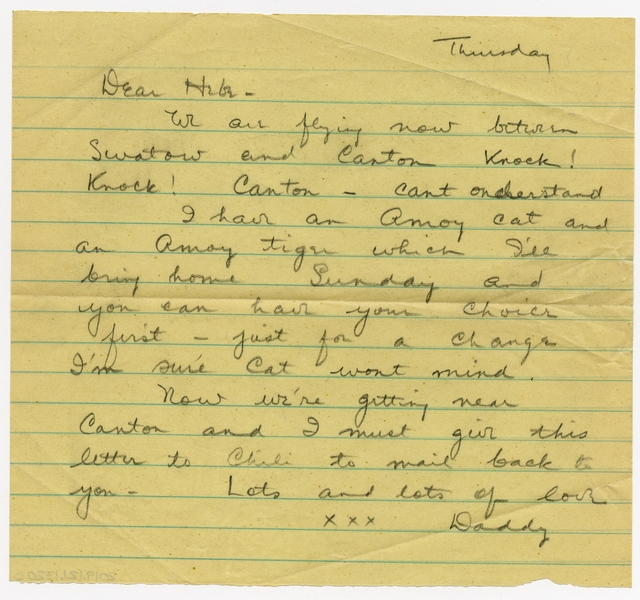 Thursday
Dear Hebe -
We are flying now between
Swatow and Canton Knock!
Knock! Canton - cant onderstand
I have an Amoy cat and
an Amoy tiger which I'll
bring home Sunday and
you can have your choice
first - just for a change
I'm sure Cat wont mind.
Now we're getting near
Canton and I must give this
letter to Chili to mail back to
you - Lots and lots of love
x x x Daddy